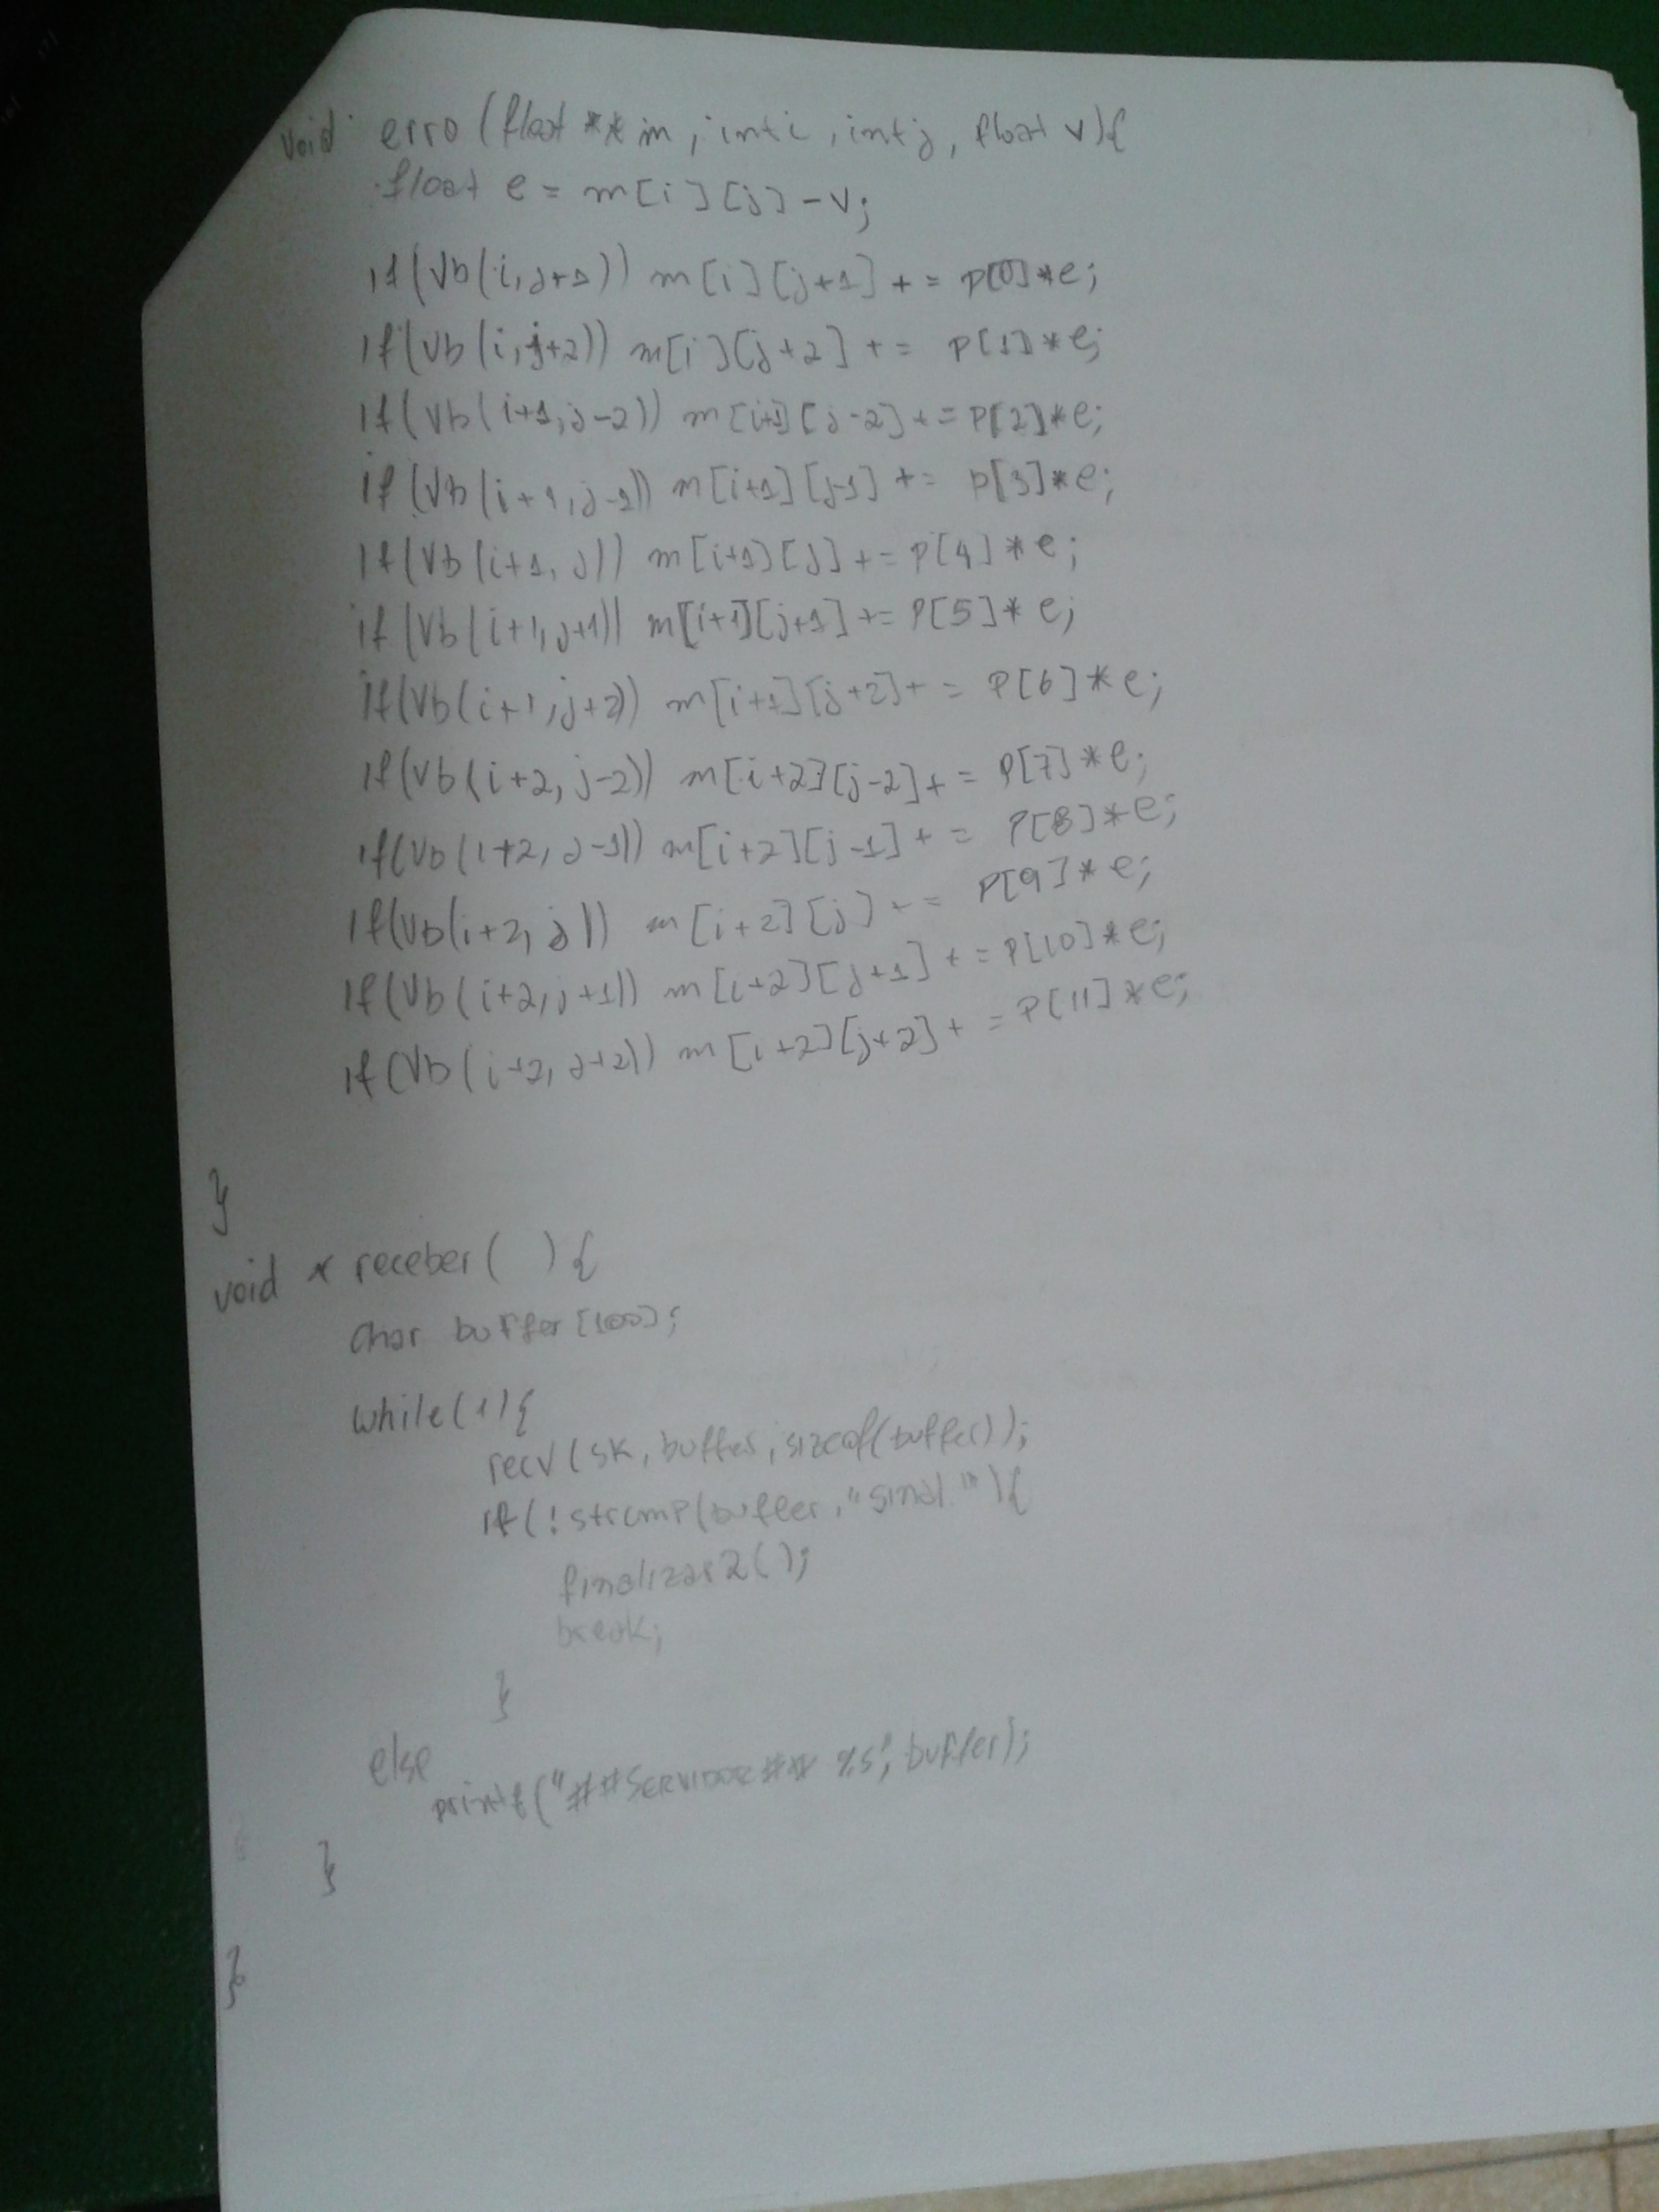 void erro (float ** m, int i, int j, float v){
float e = m[i][j] - v;
if (vb(i,j+1)) m[i][j+1] += p[0]*e;
if (vb(i,j+2)) m[i][j+2] += p[1]*e;
if (vb(i+1,j-2)) m[i+1][j-2] += p[2]*e;
if (vb(i+1,j-1)) m[i+1][j-1] += p[3]*e;
if (vb(i+1,j)) m[i+1][j] += p[4]*e;
if (vb(i+1,j+1)) m[i+1][j+1] += p[5]*e;
if (vb(i+1,j+2)) m[i+1][j+2] += p[6]*e;
if (vb(i+2,j-2)) m[i+2][j-2] += p[7]*e;
if (vb(i+2,j-1)) m[i+2][j-1] += p[8]*e;
if (vb(i+2,j)) m[i+2][j] += p[9]*e;
if (vb(i+2,j+1)) m[i+2][j+1] += p[10]*e;
if (vb(i+2,j+2)) m[i+2][j+2] += p[11]*e;
}
void * receber ( ) {
char buffer[100];
while(1){
recv(sk, buffer, sizeof(buffer));
if(!strcmp(buffer, "sinal"){
finalizar2();
break;
}
else
printf("##SERVIDOR## %s", buffer);
}
}